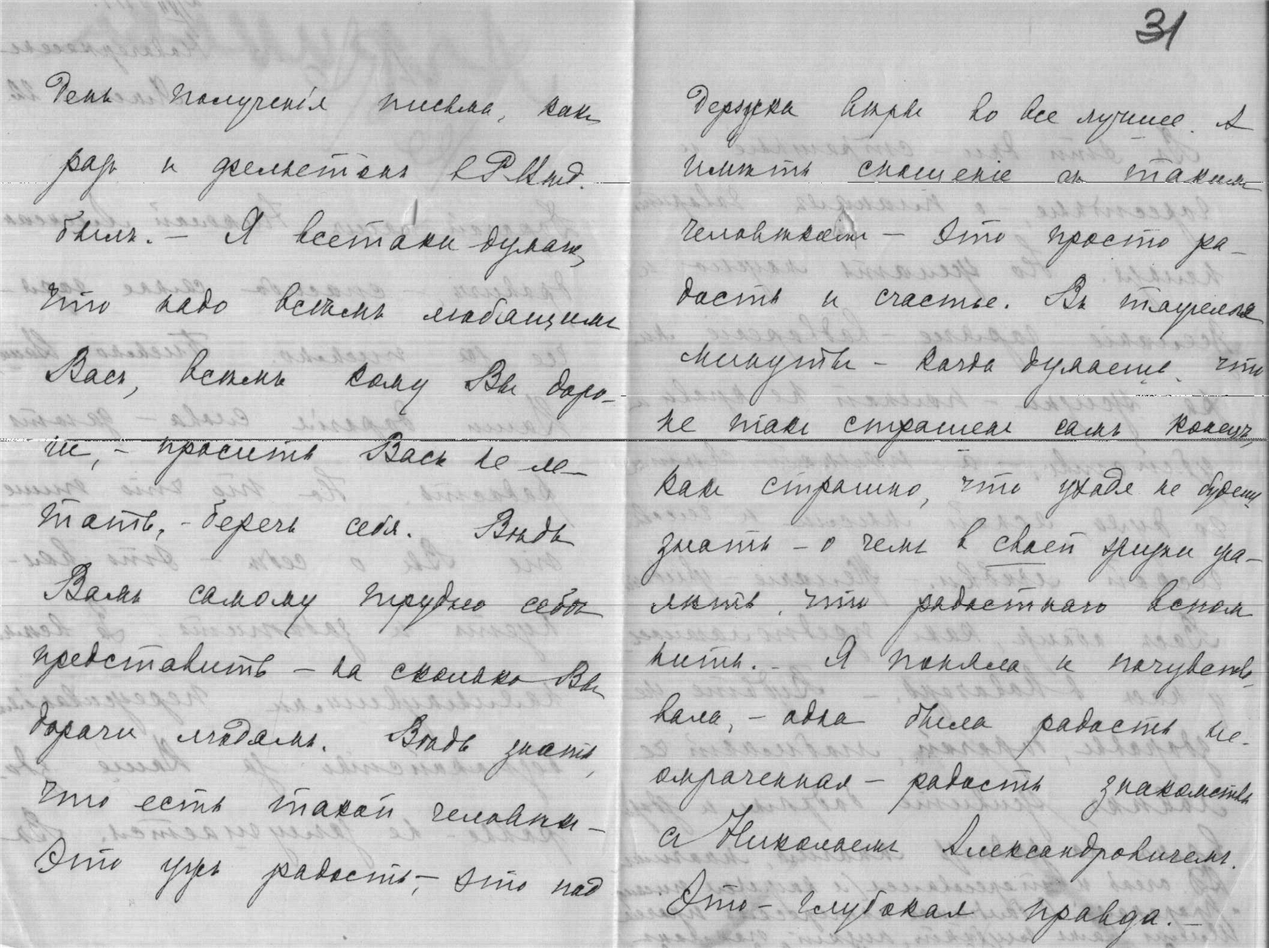 31
День полученія письма, какъ
разъ и фельетонъ в Р. Вѣд.
былъ. – Я всетаки думаю,
что надо всѣмъ любящимъ
Васъ, всѣмъ кому Вы доро-
ги, – просить Васъ не ле-
тать, – беречь себя. Вѣдь
Вамъ самому трудно себѣ
представить – на сколько Вы
дороги людямъ. Вѣдь знать,
что есть такой человѣкъ –
Это ужъ радость, – это под
держка вѣры во все лучшее. А
имѣть сношеніе съ такимъ
человѣкомъ – это просто ра-
дость и счастье. Въ тяжелыя
минуты – когда думаешь, что
не такъ страшенъ самъ конецъ,
какъ страшно, что уходя не будешь
знать – о чемъ в своей жизни жа-
лѣть, что радостнаго вспом
нить. – Я поняла и почувство-
вала, – одна была радость не-
омраченная – радость знакомства
съ Николаемъ Александровичемъ.
Это – глубокая правда. –